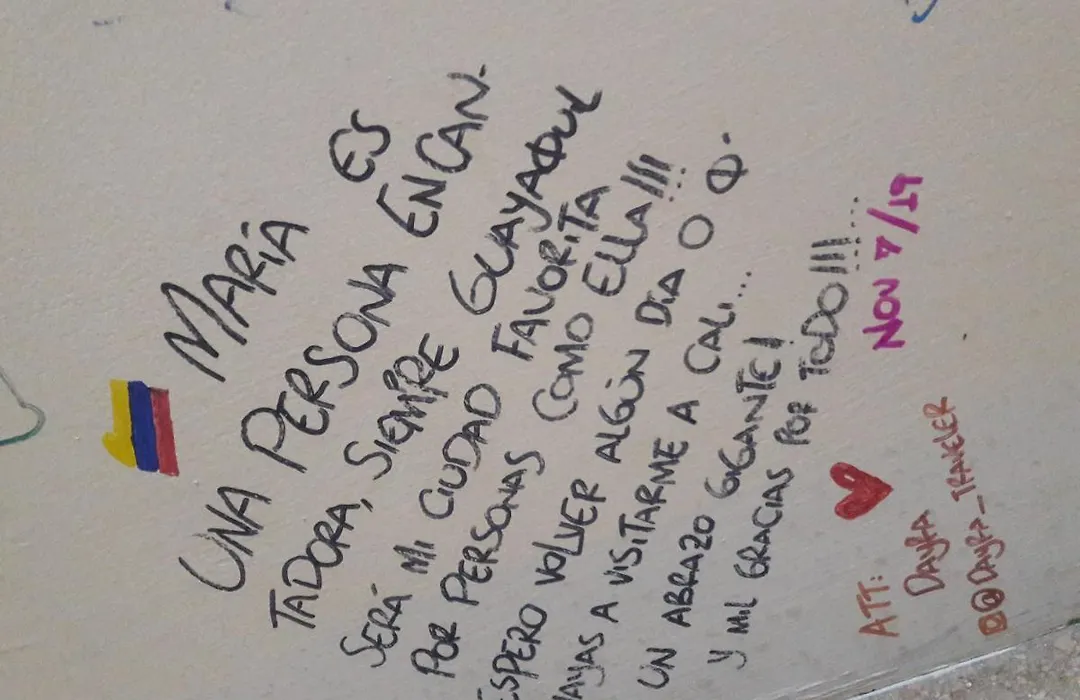 MARÍA ES
UNA PERSONA ENCAN-
TADORA, SIEMPRE GUAYAQUIL
SERÁ MI CIUDAD FAVORITA
POR PERSONAS COMO ELLA!!!
ESPERO VOLVER ALGÚN DÍA O Q.
VAYAS A VISITARME A CALI...
UN ABRAZO GIGANTE!
Y MIL GRACIAS POR TODO!!!...
NOV 7/19
ATT:
DAYRA
@DAYRA_TRAVELER